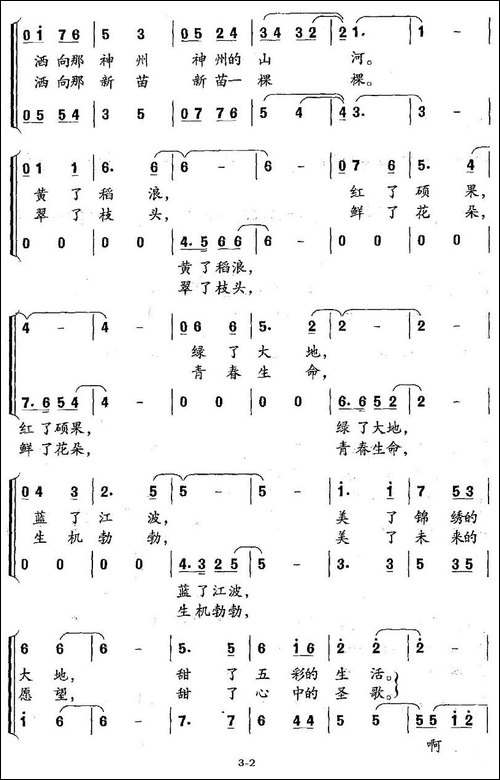 0 i 7 6 | 5 3 | 0 5 2 4 | 3 4 3 2 2 | 1. 1 | 1 - |
洒向那 神 州 神州的 山 河。
洒向那 新 苗 新苗一 棵 棵。
0 5 5 4 | 3 5 | 0 7 7 6 | 5 4 4 | 3. 3 | 3 - |
0 1 1 | 6. 6 | 6 - | 6 - | 0 7 6 | 5. 4 |
黄 了 稻 浪, 红 了 硕 果,
翠 了 枝 头, 鲜 了 花 朵,
0 0 | 0 0 | 4. 5 6 6 | 6 - | 0 0 | 0 0 |
黄了稻浪,
翠了枝头,
4 - | 4 - | 0 6 6 | 5. 2 | 2 - | 2 - |
绿 了 大 地,
青 春 生 命,
7. 6 5 4 | 4 - | 0 0 | 0 0 | 6. 6 5 2 | 2 - |
红了硕果, 绿了大地,
鲜了花朵, 青春生命,
0 4 3 | 2. 5 | 5 - | 5 - | i. i | 7 5 3 |
蓝 了 江 波, 美 了 锦 绣的
生 机 勃 勃, 美 了 未 来的
0 0 | 0 0 | 4. 3 2 5 | 5 - | 3. 3 | 5 3 5 |
蓝了江波,
生机勃勃,
6 6 | 6 - | 5. 5 | 6 i 6 | 2 2 | 2 - |
大 地, 甜 了 五 彩的 生 活。
愿 望, 甜 了 心 中的 圣 歌。
i 6 | 6 - | 7. 7 | 6 4 4 | 5 5 | 5 5 i 2 |
啊
3-2